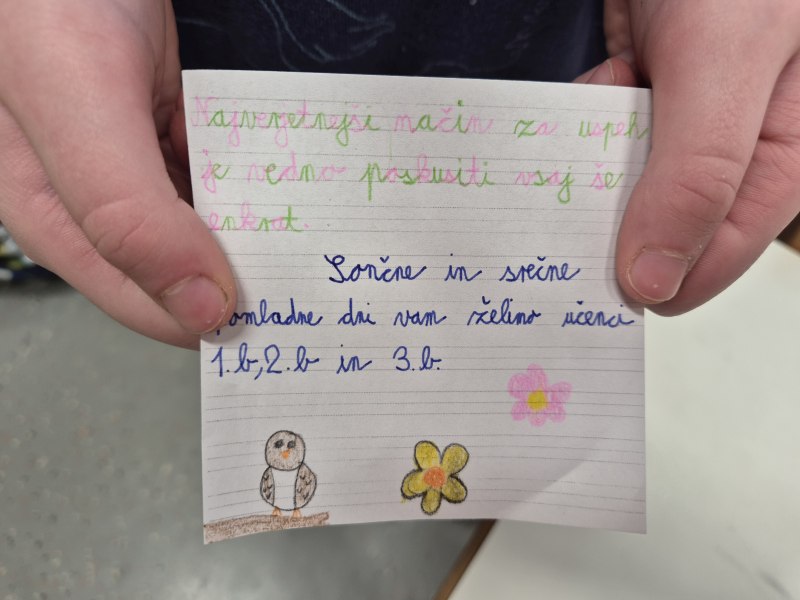 Najverjetnejši način za uspeh
je vedno poskusiti vsaj še
enkrat.
Sončne in srečne
pomladne dni vam želimo učenci
1.b,2.b in 3.b.